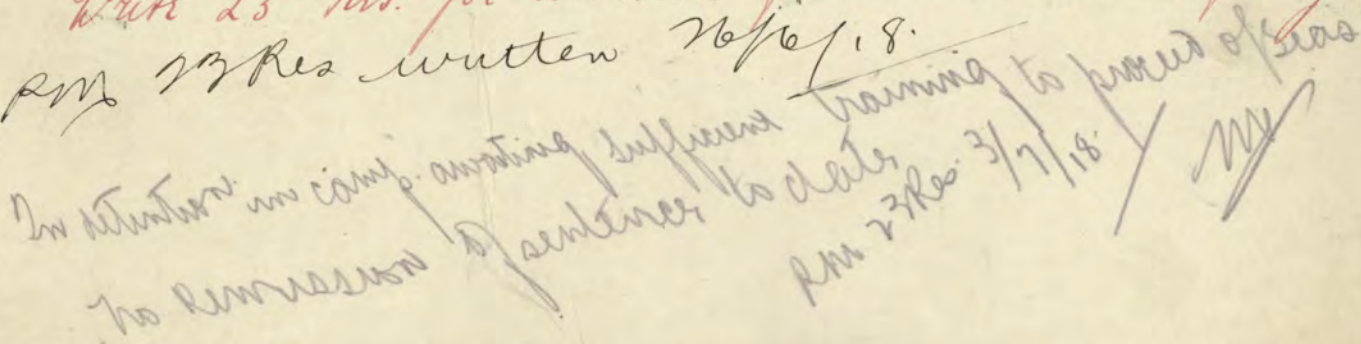 Write 23 Res. for
PM 23 Res written 26/6/18.
In detention in camp. awaiting sufficient training to proceed o/seas
No Remission of sentence to date
PM 23 Res. 3/7/18